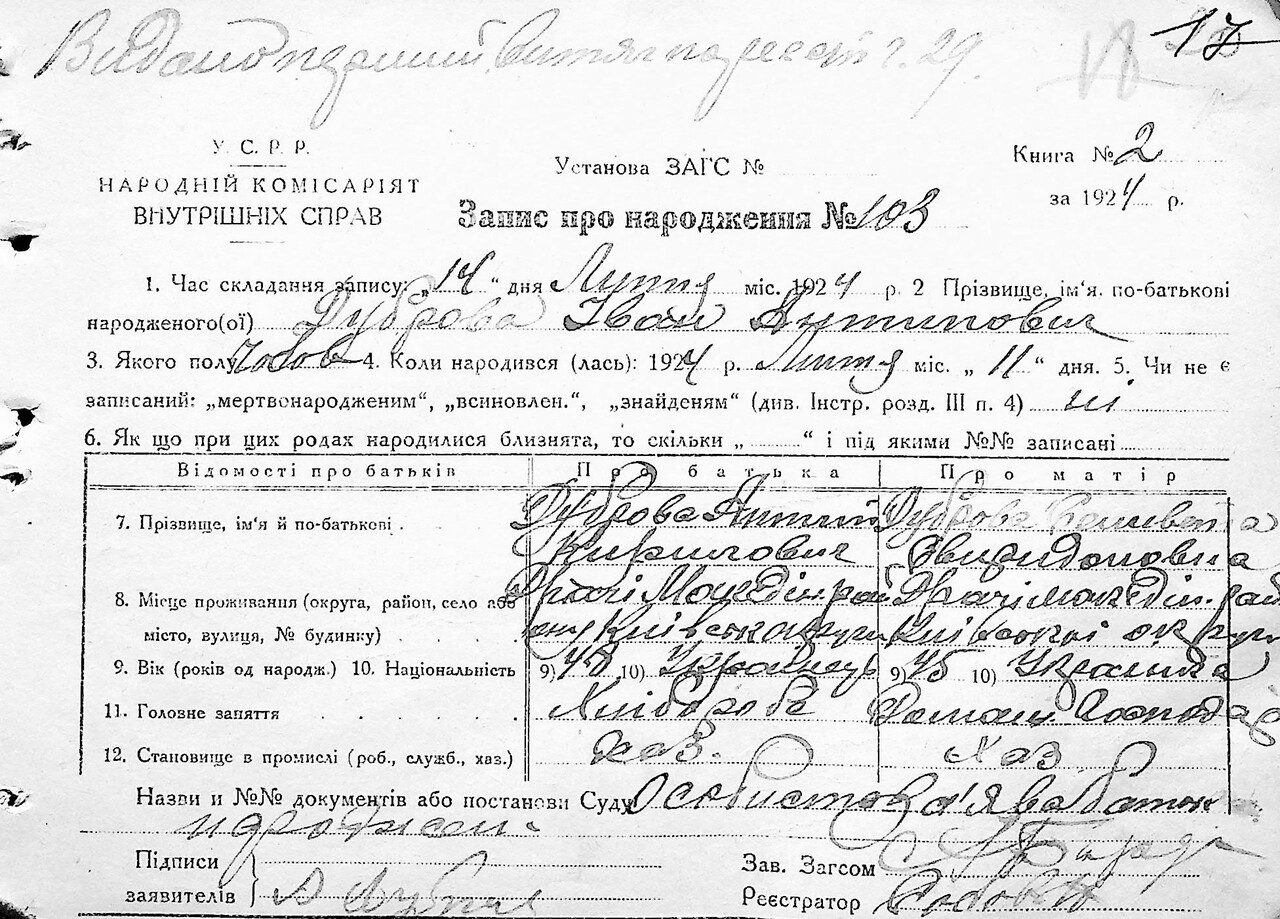 Видано повний витяг по реєстр ч. 29.
17
У. С. Р. Р.
НАРОДНІЙ КОМІСАРІЯТ
ВНУТРІШНІХ СПРАВ
Установа ЗАГС №
Книга № 2
за 1924 р.
Запис про народження № 103
1. Час складання запису: „14“ дня Лютня міс. 1924 р. 2 Прізвище, ім‘я, по-батькові
народженого(ої) Дуброва Іван Антипович
3. Якого полу чолов 4. Коли народився (лась): 1924 р. Лютня міс. „11“ дня. 5. Чи не є
записаний: „мертвонародженим“, „всиновлен.“, „знайденям“ (див. Інстр. розд. III п. 4) ні
6. Як що при цих родах народилися близнята, то скільки „ “ і під якими №№ записані
Відомості про батьків Про батька Про матір
7. Прізвище, ім‘я й по-батькові Дуброва Антип Дуброва
Кирилович
8. Місце проживання (округа, район, село або
місто, вулиця, № будинку) Київськ округи Київської округи
9. Вік (років од народж.) 10. Національність 9) 48 10) Українець 9) 45 10) Українка
11. Головне запяття Хлібороб Домаш Господар
12. Становище в промислі (роб., служб., хаз.) хаз. хаз
Назви и №№ документів або постанови Суду Особиста Зая‘ва батька
Підписи
заявителів
Зав. Загсом
Реєстратор